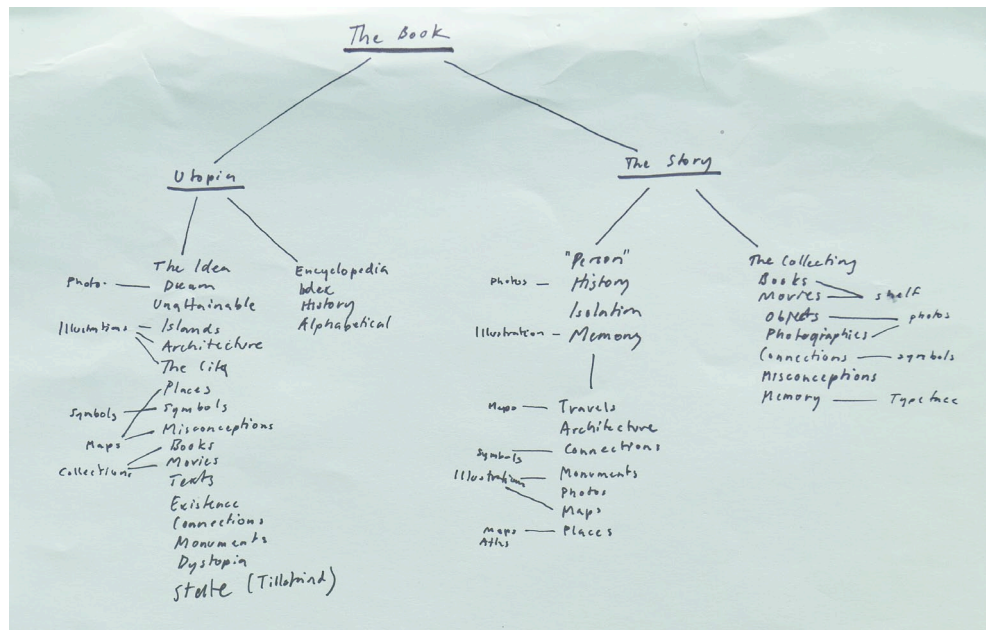 The Book
Utopia
The Story
The Idea
Photo - Dream
Unattainable
Illustrations - Islands
Architecture
The City
Places
Symbols - Symbols
Maps - Misconceptions
Books
Collections - Movies
Texts
Existence
Connections
Monuments
Dystopia
State
Encyclopedia
Index
History
Alphabetical
"Person"
Photos - History
Isolation
Illustration - Memory
Maps - Travels
Architecture
Symbols - Connections
Illustrations - Monuments
Photos
Maps
Maps - Places
Atlas
The Collecting
Books
Movies - shelf
Objects - photos
Photographics
Connections - symbols
Misconceptions
Memory - Typeface